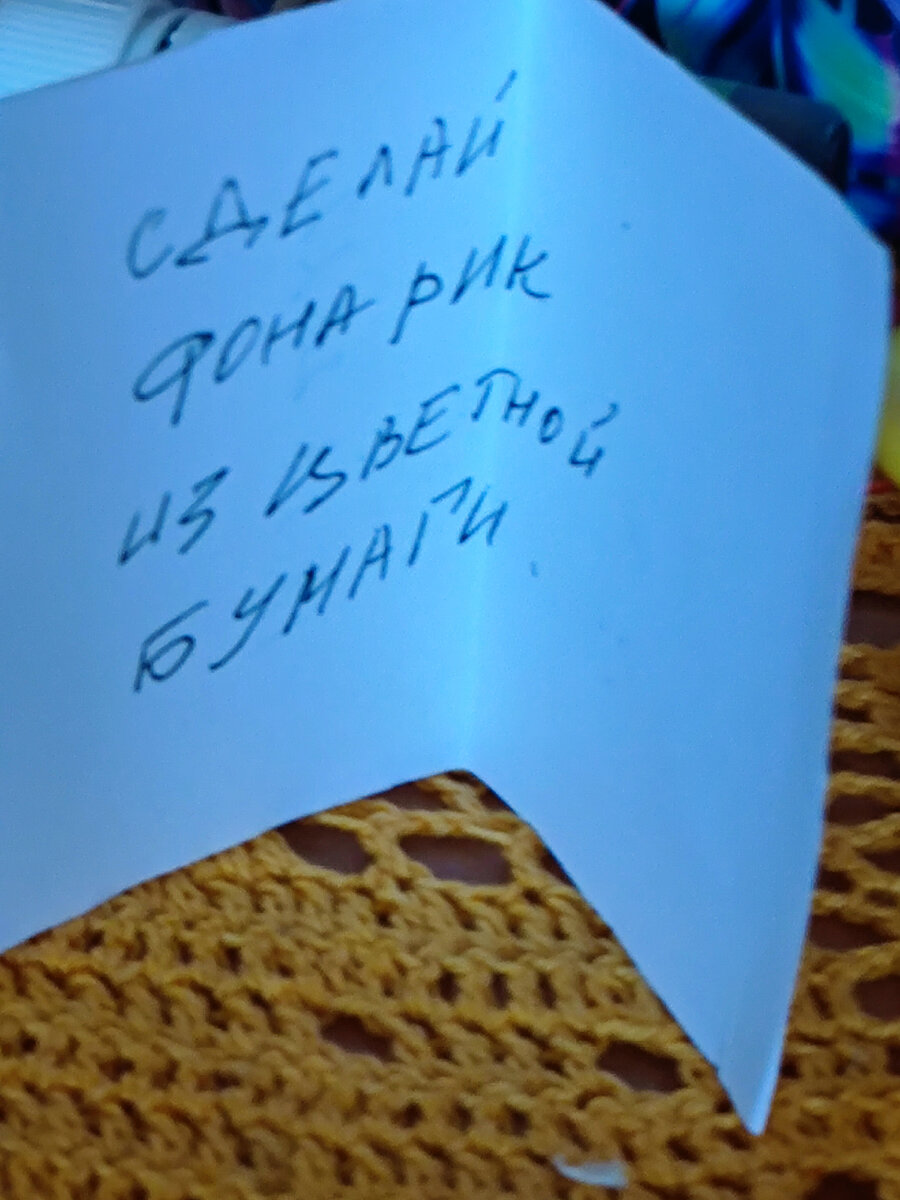 СДЕЛАЙ
ФОНАРИК
ИЗ ЦВЕТНОЙ
БУМАГИ